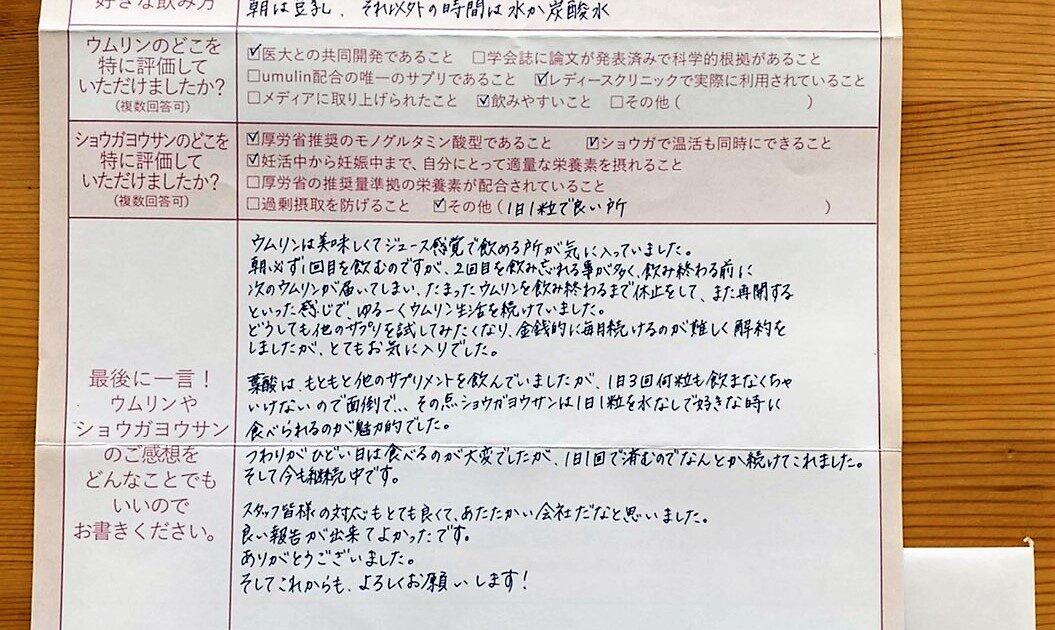 好きな飲み方
朝は豆乳、それ以外の時間は水か炭酸水
ウムリンのどこを
特に評価して
いただけましたか?
(複数回答可)
☑医大との共同開発であること □学会誌に論文が発表済みで科学的根拠があること
□umulin配合の唯一のサプリであること ☑レディースクリニックで実際に利用されていること
□メディアに取り上げられたこと ☑飲みやすいこと □その他( )
ショウガヨウサンのどこを
特に評価して
いただけましたか?
(複数回答可)
☑厚労省推奨のモノグルタミン酸型であること ☑ショウガで温活も同時にできること
☑妊活中から妊娠中まで、自分にとって適量な栄養素を摂れること
□厚労省の推奨量準拠の栄養素が配合されていること
□過剰摂取を防げること ☑その他(1日1粒で良い所 )
最後に一言!
ウムリンや
ショウガヨウサン
のご感想を
どんなことでも
いいので
お書きください。
ウムリンは美味しくてジュース感覚で飲める所が気に入っていました。
朝必ず1回目を飲むのですが、2回目を飲み忘れる事が多く、飲み終わる前に
次のウムリンが届いてしまい、たまったウムリンを飲み終わるまで休止をして、また再開する
といった感じで、ゆるーくウムリン生活を続けていました。
どうしても他のサプリを試してみたくなり、金銭的に毎月続けるのが難しく解約を
しましたが、とてもお気に入りでした。
葉酸は、もともと他のサプリメントを飲んでいましたが、1日3回何粒も飲まなくちゃ
いけないので面倒で... その点ショウガヨウサンは1日1粒を水なしで好きな時に
食べられるのが魅力的でした。
つわりがひどい日は食べるのが大変でしたが、1日1回で済むのでなんとか続けてこれました。
そして今も継続中です。
スタッフ皆様の対応もとても良くて、あたたかい会社だなと思いました。
良い報告が出来てよかったです。
ありがとうございました。
そしてこれからも、よろしくお願いします!